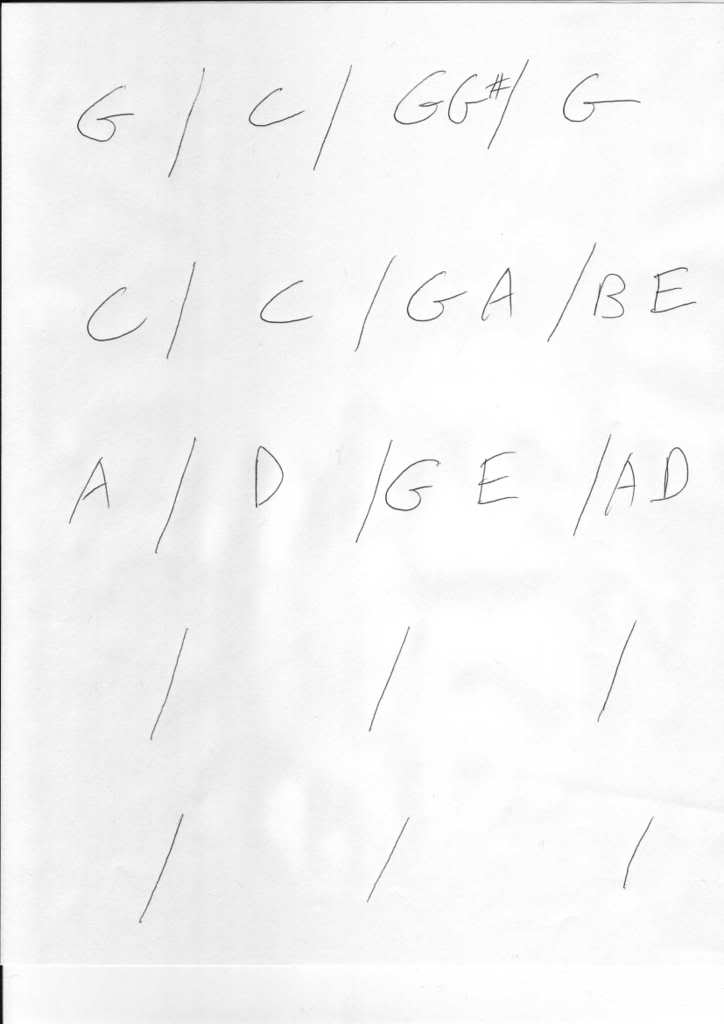 G / C / GG# / G
C / C / G A / B E
A / D / G E / A D
/ / /
/ / /